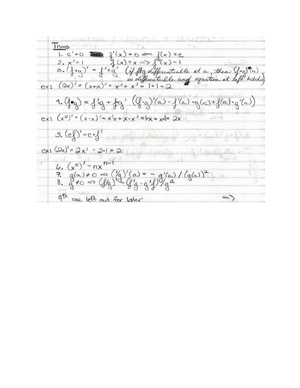 Thms
1. c'=0 f'(x)=0 ⟸ f(x)=c
2. x'=1 f(x)=x ⟹ f'(x)=1
3. (f+g)' = f'+g' (if f,g differentiable at a, then (f+g)'(a)
is differentiable and equation at left holds)
ex: (2x)' = (x+x)' = x'+x' = 1+1=2
4. (f•g) = f'g + fg' (f•g)'(a) = f'(a)•g(a)+f(a)•g'(a)
ex: (x²)' = (x•x)' = x'x + x•x' = 1x + x1 = 2x
5. (cf)' = c•f'
ex: (2x)' = 2x' = 2•1 = 2
6. (xⁿ)' = nxⁿ⁻¹
7. g(a)≠0 ⟹ (1/g)'(a) = - g'(a)/(g(a))²
8. g≠0 ⟹ (f/g)' = (f'g-g'f)/g²
9th one left out for later ⟹